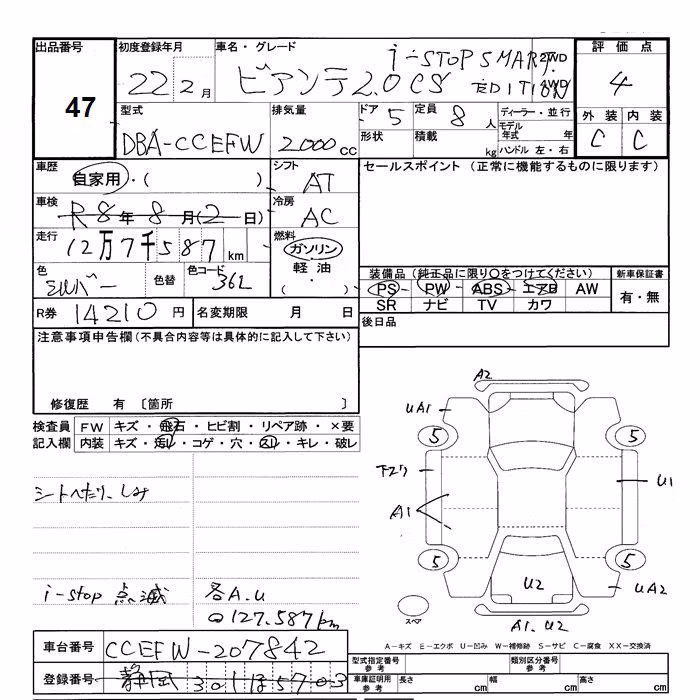 出品番号 47
初度登録年月 22年2月
車名・グレード ビアンテ 2.0CS i-STOP SMART EDITION
2WD 4WD
評価点 4
外装 C 内装 C
型式 DBA-CCEFW
排気量 2000cc
ドア 5 定員 8人
形状 積載 kg
ディーラー・並行
モデル年式 年
ハンドル 左・右
車歴 自家用・( )
シフト AT
セールスポイント (正常に機能するものに限ります)
車検 R8年8月(2日)
冷房 AC
走行 12万7千587km
燃料 ガソリン 軽油 ( ・ )
色 シルバー 色替 色コード 36L
装備品 (純正品に限り○をつけてください) 新車保証書
PS PW ABS エアB AW 有・無
SR ナビ TV カワ
R券 14210円 名変期限 月 日
後日品
注意事項申告欄 (不具合内容等は具体的に記入して下さい)
修復歴 有 〔箇所 〕
検査員記入欄 FW キズ・飛石・ヒビ割・リペア跡・×要
内装 キズ・汚レ・コゲ・穴・スレ・キレ・破レ
シートへたり、しみ
i-stop 点滅 各A.U
127.587km
A2
UA1
5 5
下271
A1
U1
5 5
U2
UA2
スペア
A1. U2
A-キズ E-エクボ U-凹み W-補修跡 S-サビ C-腐食 XX-交換済
車台番号 CCEFW-207842
型式指定番号 参考 類別区分番号 参考
登録番号 静岡 301 ほ 5703
車庫証明用 参考 長さ cm 幅 cm 高さ cm